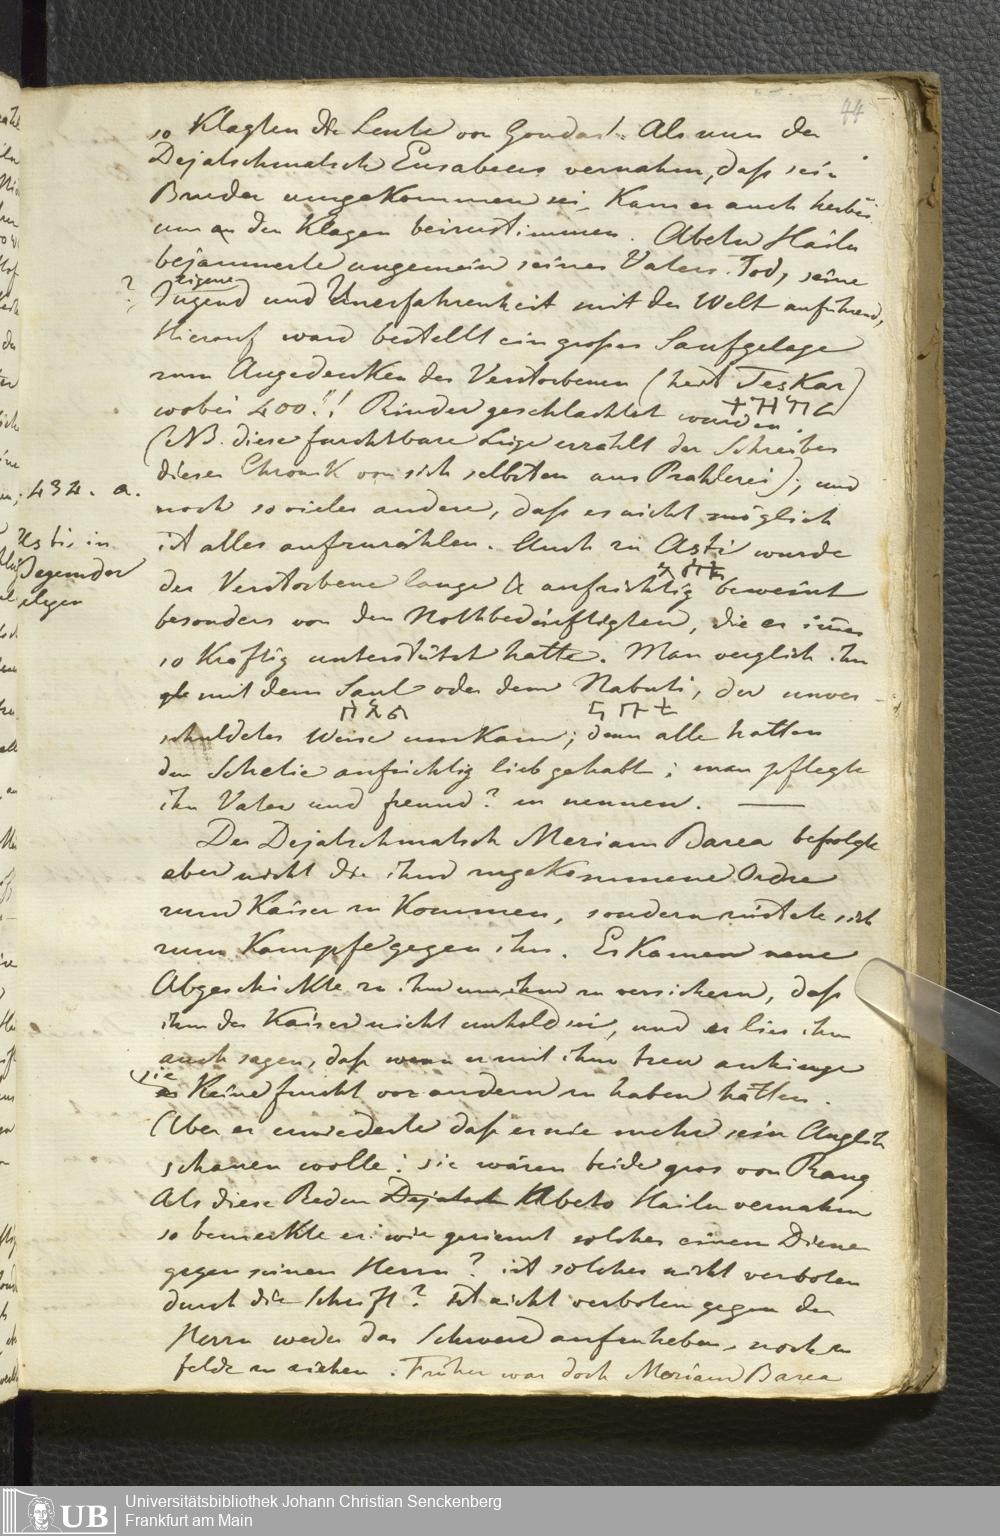 44
so Klagten die Leute von Gondar!. Als nun der
Dejatschmatsch Eusabius vernahm, daß sein
Bruder umgekommen sei, Kam er auch herbei
um an den Klagen beizustimmen. Abeto Hailu
bejammerte ungemein seines Vaters Tod, seine
eigene
? Jugend und Unerfahrenheit mit der Welt anführend,
Hierauf ward bestellt ein großes Saufgelage
zum Angedenken des Verstorbenen (heist Teskar)
ተዝካር
wobei 400!! Rinder geschlachtet wurden.
(NB. diese furchtbare Lüge erzählt der Schreiber
dieser Chronik von sich selbsten aus Prahlerei); und
434. a.
noch so vieles andere, daß es nicht möglich
ist alles aufzuzählen. Auch zu Asti wurde
der Verstorbene lange & aufrichtig beweint
besonders von den Nothbedürftigten, die er immer
so Kräftig unterstützt hatte. Man verglich ihn
mit dem Saul oder dem Nabuti, der unver-
ሳኦል ናቡቴ
schuldeter Weise umkam; denn alle hatten
den Schelic aufrichtig lieb gehabt; man pflegte
ihn Vater und freund? zu nennen. —
Der Dejatschmatsch Meriam Barea befolgte
aber nicht die ihm zugekommene Ordre
zum Kaiser zu Kommen, sondern rüstete sich
zum Kampfe gegen ihn. Es Kamen neue
Abgeschickte zu ihm um ihm zu versichern, daß
ihm der Kaiser nicht unhold sei, und er lies ihm
auch sagen, daß wenn er mit ihm treu anhinge
sie
Keine furcht vor andern zu haben hätten.
Aber er erwiederte daß er nie mehr sein Anglitz
schauen wolle: sie wären beide gros von Rang
Als diese Reden Dejatsch Abeto Hailu vernahm
so bemerkte er: wie geziemt solches einem Diener
gegen seinen Herrn? ist solches nicht verboten
durch die Schrift? ist nicht verboten gegen den
Herrn weder das Schwerd aufzuheben, noch zu
felde zu ziehen. Früher war doch Meriam Barea
UB
Universitätsbibliothek Johann Christian Senckenberg
Frankfurt am Main